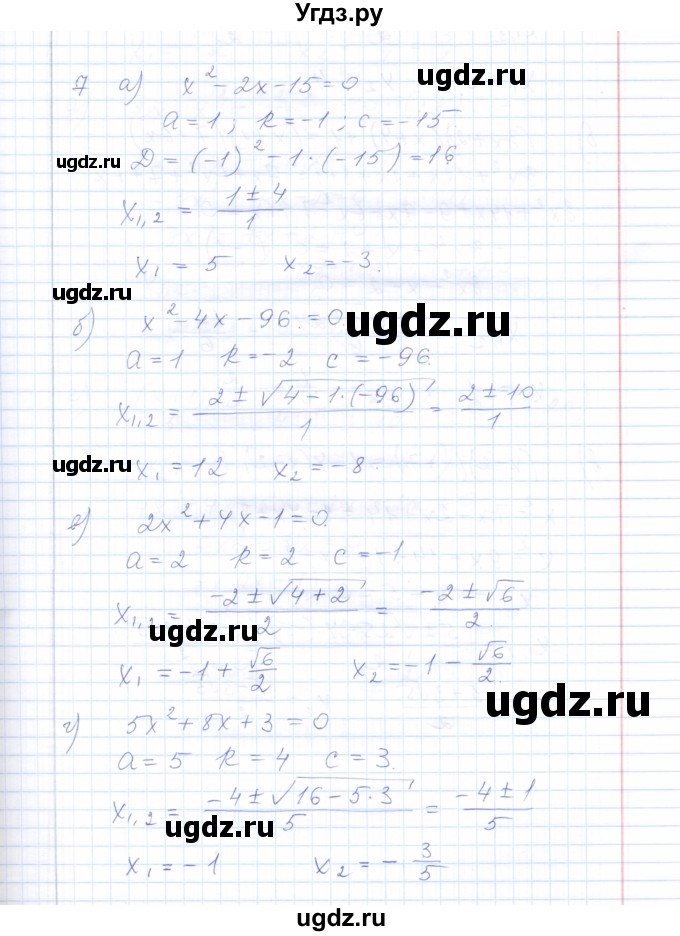 Угдз.ру
7 а) x² - 2x - 15 = 0
a = 1; k = -1; c = -15
ugdz.ru
ugdz.ru
D = (-1)² - 1 · (-15) = 16
x₁,₂ = (1 ± 4)/1
x₁ = 5 x₂ = -3.
ugdz.ru
б) x² - 4x - 96 = 0.
ugdz.ru
a = 1 k = -2 c = -96.
x₁,₂ = (2 ± √(4 - 1·(-96)))/1 = (2 ± 10)/1
ugdz.ru
x₁ = 12 x₂ = -8.
в) 2x² + 4x - 1 = 0.
a = 2 k = 2 c = -1
x₁,₂ = (-2 ± √(4 + 2))/2 = (-2 ± √6)/2.
ugdz.ru
x₁ = -1 + √6/2 x₂ = -1 - √6/2.
ugdz.ru
г) 5x² + 8x + 3 = 0
a = 5 k = 4 c = 3.
x₁,₂ = (-4 ± √(16 - 5·3))/5 = (-4 ± 1)/5
ugdz.ru
x₁ = -1 x₂ = -3/5
ugdz.ru